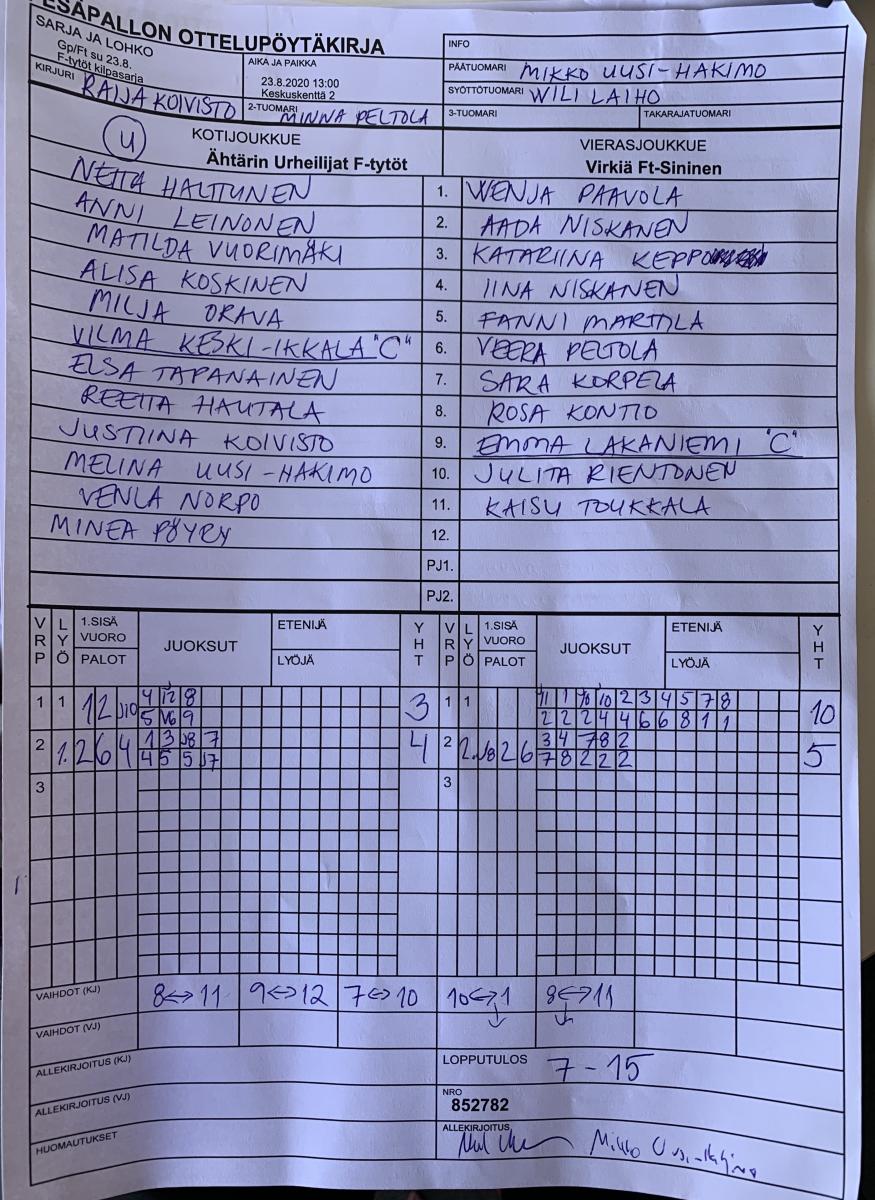 PESÄPALLON OTTELUPÖYTÄKIRJA
SARJA JA LOHKO
Gp/Ft su 23.8.
F-tytöt kilpasarja
AIKA JA PAIKKA
23.8.2020 13:00
Keskuskenttä 2
INFO
PÄÄTUOMARI MIKKO UUSI-HAKIMO
SYÖTTÖTUOMARI WILI LAIHO
KIRJURI RAIJA KOIVISTO
2-TUOMARI MINNA PELTOLA
3-TUOMARI
TAKARAJATUOMARI
U KOTIJOUKKUE
Ähtärin Urheilijat F-tytöt
VIERASJOUKKUE
Virkiä Ft-Sininen
NETTA HALTTUNEN 1. WENJA PAAVOLA
ANNI LEINONEN 2. AADA NISKANEN
MATILDA VUORIMÄKI 3. KATARIINA KEPPO
ALISA KOSKINEN 4. IINA NISKANEN
MILJA ORAVA 5. FANNI MARTTILA
VILMA KESKI-IKKALA "C" 6. VEERA PELTOLA
ELSA TAPANAINEN 7. SARA KORPELA
REETTA HAUTALA 8. ROSA KONTIO
JUSTIINA KOIVISTO 9. EMMA LAKANIEMI "C"
MELINA UUSI-HAKIMO 10. JULITA RIENTONEN
VENLA NORPO 11. KAISU TOUKKALA
MINEA PÖYRY 12.
PJ1.
PJ2.
VRP LYÖ 1.SISÄ VUORO PALOT JUOKSUT ETENIJÄ LYÖJÄ YHT VRP LYÖ 1.SISÄ VUORO PALOT JUOKSUT ETENIJÄ LYÖJÄ YHT
1 1 12 J10 4 12 8 3 1 1 11 1 10 10 2 3 4 5 7 8 10
5 9 2 2 2 4 4 6 6 8 1 1
2 1. 2 6 4 1 3 J8 7 4 2 2. J8 2 6 3 4 7 8 2 5
4 5 5 J7 7 8 2 2 2
3 3
VAIHDOT (KJ) 8<->11 9<->12 7<->10 10<->1 8<->11
VAIHDOT (VJ)
ALLEKIRJOITUS (KJ)
LOPPUTULOS 7 - 15
ALLEKIRJOITUS (VJ)
NRO
852782
HUOMAUTUKSET
ALLEKIRJOITUS
Mikko Uusi-Hakimo